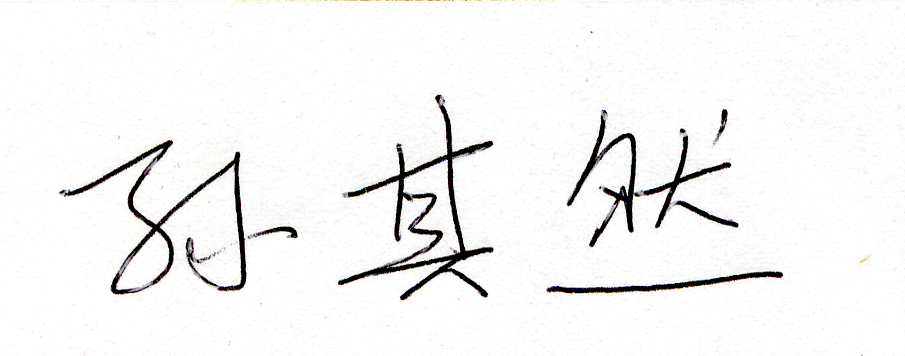 孙其然